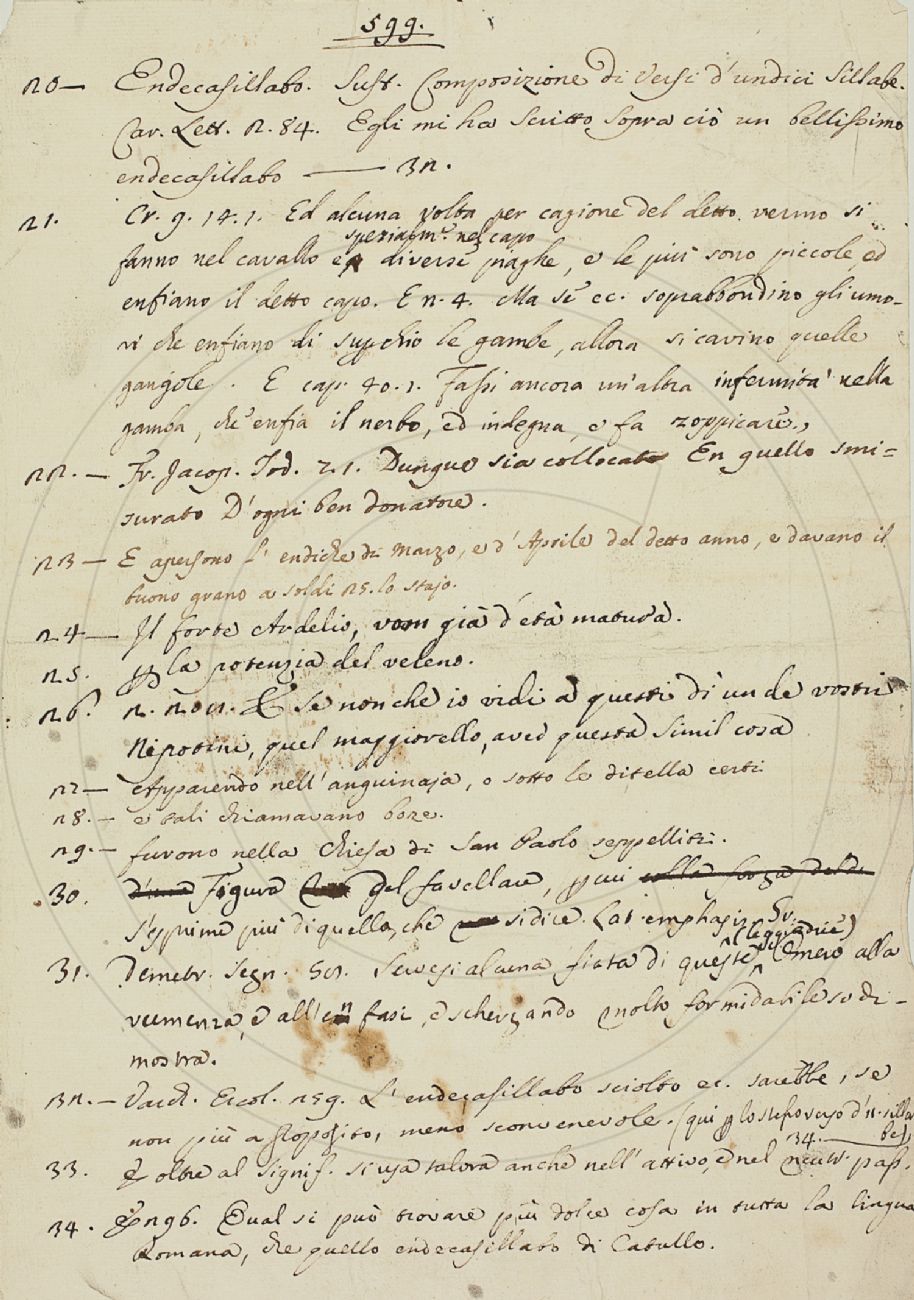 599.
20— Endecasillabo. Sust. Composizione di versi d'undici sillabe.
Car. Lett. 2. 84. Egli mi ha scritto sopra ciò un bellissimo
endecasillabo —— 32.
21. Cr. 9. 14. 1. Ed alcuna volta per cagione del detto vermo si
spezialm.e nel capo
fanno nel cavallo diverse piaghe, e le più sono piccole, ed
enfiano il detto capo. E n. 4. Ma se ec. soprabbondino gli umo-
ri che enfiano di superchio le gambe, allora si cavino quelle
gangole. E cap. 40. 1. Fassi ancora un'altra infermità nella
gamba, che enfia il nerbo, ed indegna, e fa zoppicare.
22. — Fr. Jacop. Tod. 2. 1. Dunque sia collocato En quello smi=
surato D'ogni ben donatore.
23 — E apersono l'endiche di Marzo, e d'Aprile del detto anno, e davano il
buono grano a soldi 25. lo stajo.
24 — Il forte Ardelio, uom già d'età matura.
25. p la potenzia del veleno.
26. 2. 202. E se non che io vidi a questi dì un de vostri
Nipotini, quel maggiorello, aved questa simil cosa
27 — Apparendo nell'anguinaja, o sotto le ditella certi
28. — e tali chiamavano boze.
29. — furono nella Chiesa di San Paolo seppelliti.
30. Figura del favellare, p cui
s'esprime più di quello, che si dice. Lat. emphasis. Gr.
31. Demetr. Segn. 501. Servesi alcuna fiata di queste (leggiadrie) Omero alla
veemenza, e all'enfasi, e scherzando molto formidabile si di-
mostra.
32. — Varch. Ercol. 259. L'endecasillabo sciolto ec. sarebbe, se
non più a sproposito, meno sconvenevole. (qui p lo stesso verso d'11. silla
be)
34.
33. E oltre al signif. si usa talora anche nell'attivo, e nel neutr. pass.
34. E 296. Qual si può trovare più dolce cosa in tutta la lingua
Romana, che quello endecasillabo di Catullo.